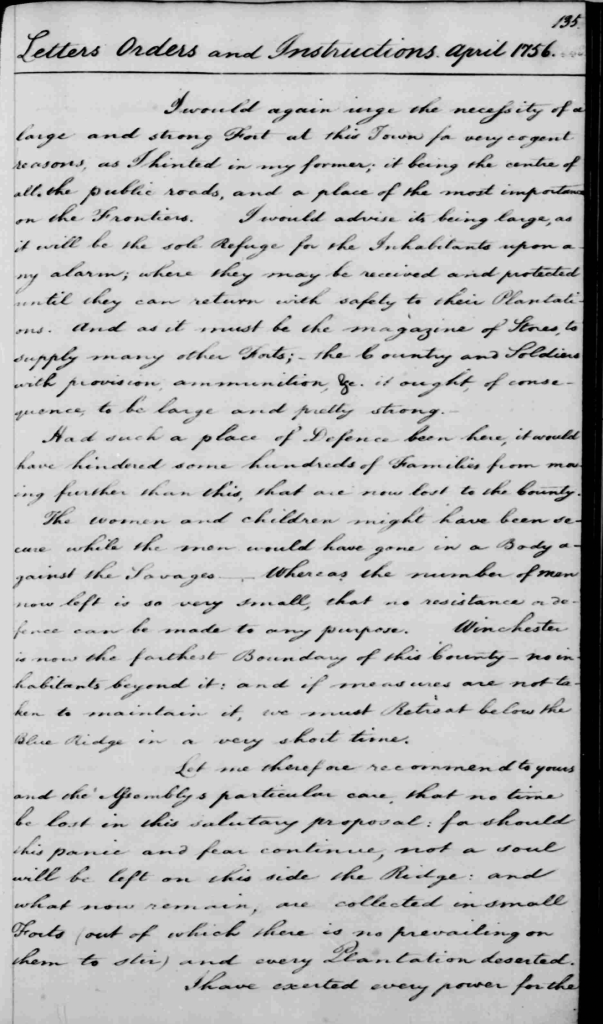 135.
Letters Orders and Instructions. April 1756.
I would again urge the necessity of a
large and strong Fort at this Town for very cogent
reasons, as I hinted in my former; it being the centre of
all the public roads, and a place of the most importance
on the Frontiers. I would advise its being large, as
it will be the sole Refuge for the Inhabitants upon a-
ny alarm; where they may be received and protected
until they can return with safety to their Plantati-
ons. And as it must be the magazine of Stores, to
supply many other Forts;- the Country and Soldiers
with provision, ammunition, &c. it ought, of conse-
quence, to be large and pretty strong.-
Had such a place of Defence been here, it would
have hindered some hundreds of Families from mov-
ing further than this, that are now lost to the County.
The women and children might have been se-
cure while the men would have gone in a Body a-
gainst the Savages-. Whereas the number of men
now left is so very small, that no resistance or de-
fence can be made to any purpose. Winchester
is now the farthest Boundary of this County- no in-
habitants beyond it: and if measures are not ta-
ken to maintain it, we must Retreat below the
Blue Ridge in a very short time.
Let me therefore recommend to yours
and the Assembly's particular care, that no time
be lost in this salutary proposal: for should
this panic and fear continue, not a soul
will be left on this side the Ridge: and
what now remain, are collected in small
Forts (out of which there is no prevailing on
them to stir) and every Plantation deserted.
I have exerted every power for the